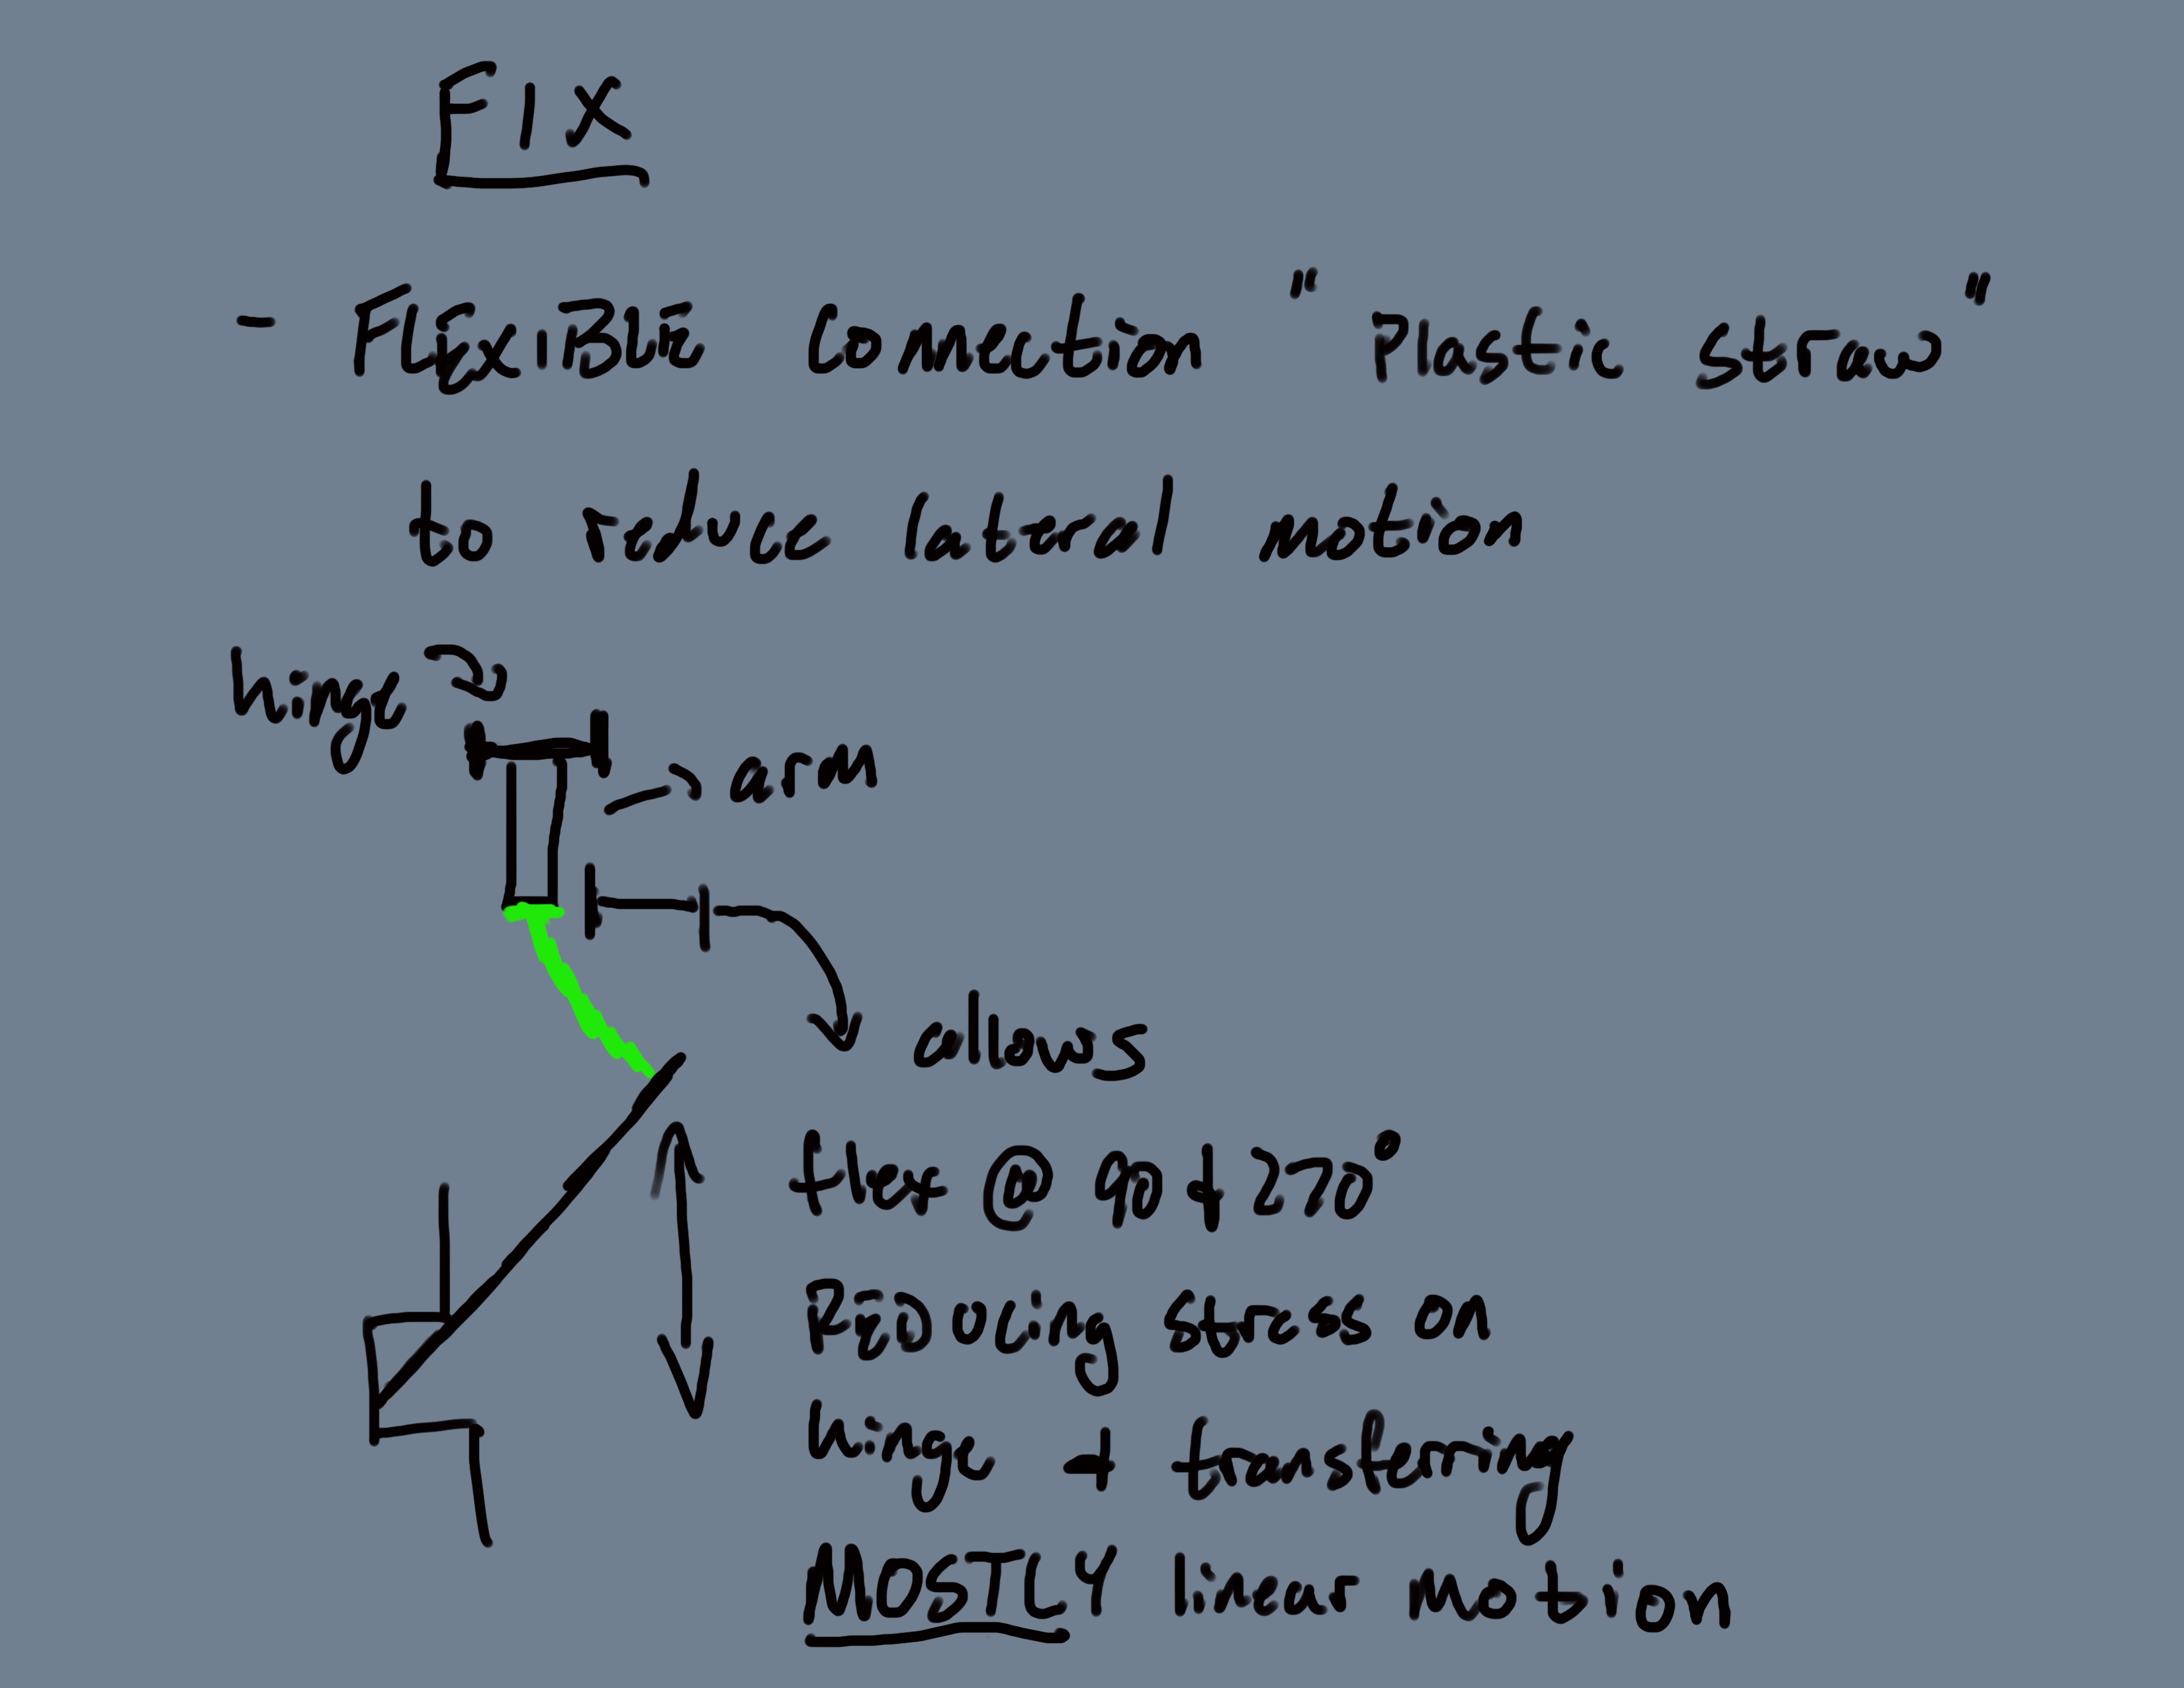 FIX
- FLEXIBLE connection "Plastic straw"
to reduce lateral motion
hinge
arm
allows
flex @ 90 + 270°
REDucing stress on
hinge + transferring
MOSTLY linear motion